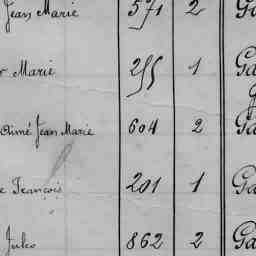 Jean Marie 571 2 Ga
r Marie 255 1 Ga
Aimé Jean Marie 604 2 Ga
e François 201 1 Ga
Jules 862 2 Ga